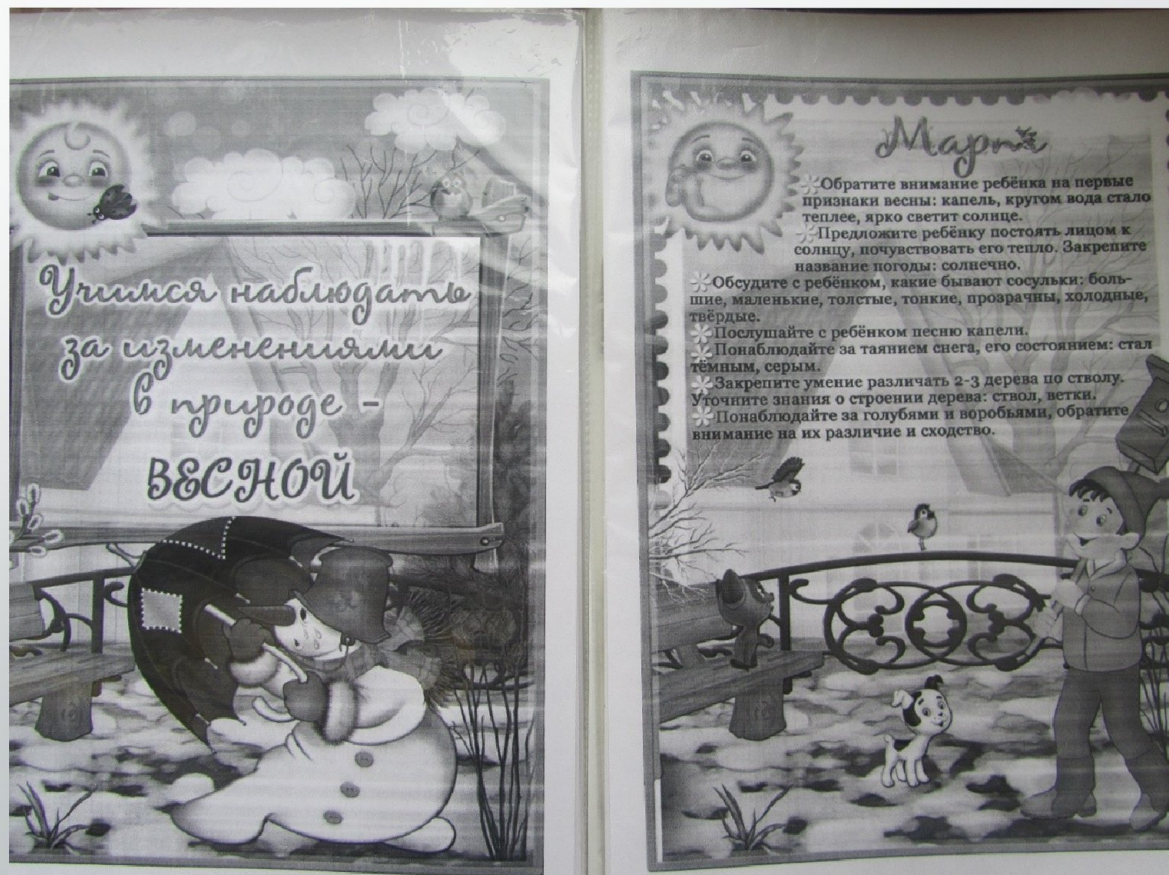 Учимся наблюдать
за изменениями
в природе -
ВЕСНОЙ
Март
Обратите внимание ребёнка на первые
признаки весны: капель, кругом вода стало
теплее, ярко светит солнце.
Предложите ребёнку постоять лицом к
солнцу, почувствовать его тепло. Закрепите
название погоды: солнечно.
Обсудите с ребёнком, какие бывают сосульки: боль-
шие, маленькие, толстые, тонкие, прозрачны, холодные,
твёрдые.
Послушайте с ребёнком песню капели.
Понаблюдайте за таянием снега, его состоянием: стал
тёмным, серым.
Закрепите умение различать 2-3 дерева по стволу.
Уточните знания о строении дерева: ствол, ветки.
Понаблюдайте за голубями и воробьями, обратите
внимание на их различие и сходство.